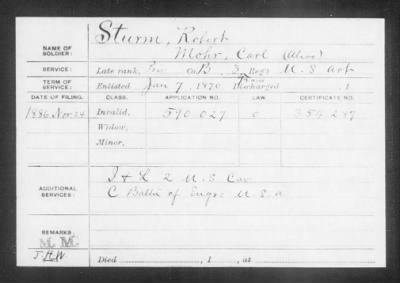 NAME OF SOLDIER: Sturm, Robert
Mohr, Carl (Alias)
SERVICE: Late rank, Co. B, 3 Reg't U.S. Art
TERM OF SERVICE: Enlisted Jan 7, 1870 Discharged , 1
DATE OF FILING. CLASS. APPLICATION NO. LAW CERTIFICATE NO.
1886 Nov 24 Invalid, 590.027
Widow,
Minor,
ADDITIONAL SERVICES: 2 U.S. Cav
C Battn of Engrs U.S.A
REMARKS:
M. M.
J.H.W.
Died , 1 , at